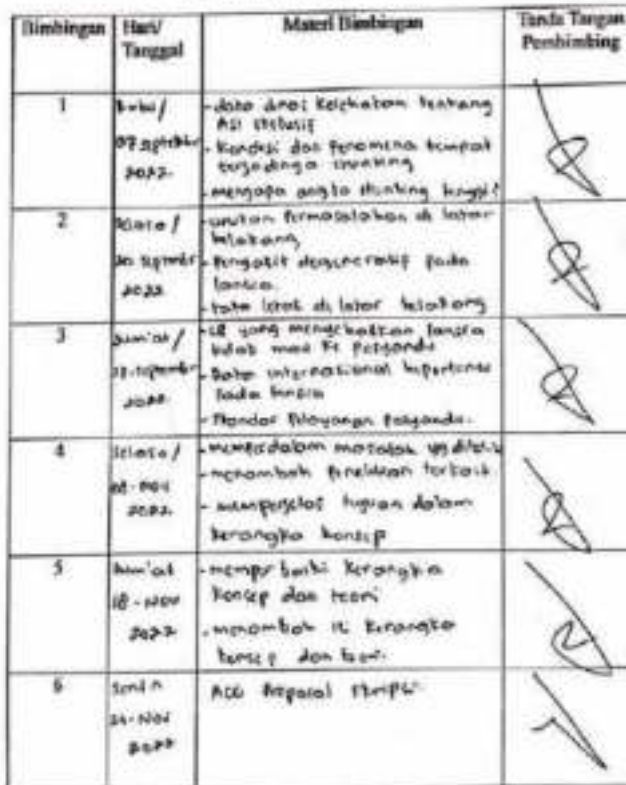 Bimbingan
Hari/
Tanggal
Materi Bimbingan
Tanda Tangan
Pembimbing
1
Rabu /
07 September
2022
- data dinas kesehatan tentang
ASI Eksklusif
- kondisi dan fenomena tempat
terjadinya stunting
- mengapa angka stunting tinggi?
2
Selasa /
20 September
2022
- urutan permasalahan di latar
belakang
- Penyakit degeneratif pada
lansia
- tata letak di latar belakang
3
Jum'at /
september
2022
- yang menyebabkan lansia
tidak mau ke posyandu
- Data internasional hipertensi
pada lansia
- Standar Pelayanan posyandu.
4
Selasa /
08 - Nov
2022
- memperdalam masalah yg diteliti
- menambah penelitian terkait
- memperjelas tujuan dalam
kerangka konsep
5
Jum'at
18 - Nov
2022
- memperbaiki kerangka
konsep dan teori
- menambah kerangka
konsep dan teori.
6
Senin
- Nov
2022
ACC Proposal Skripsi